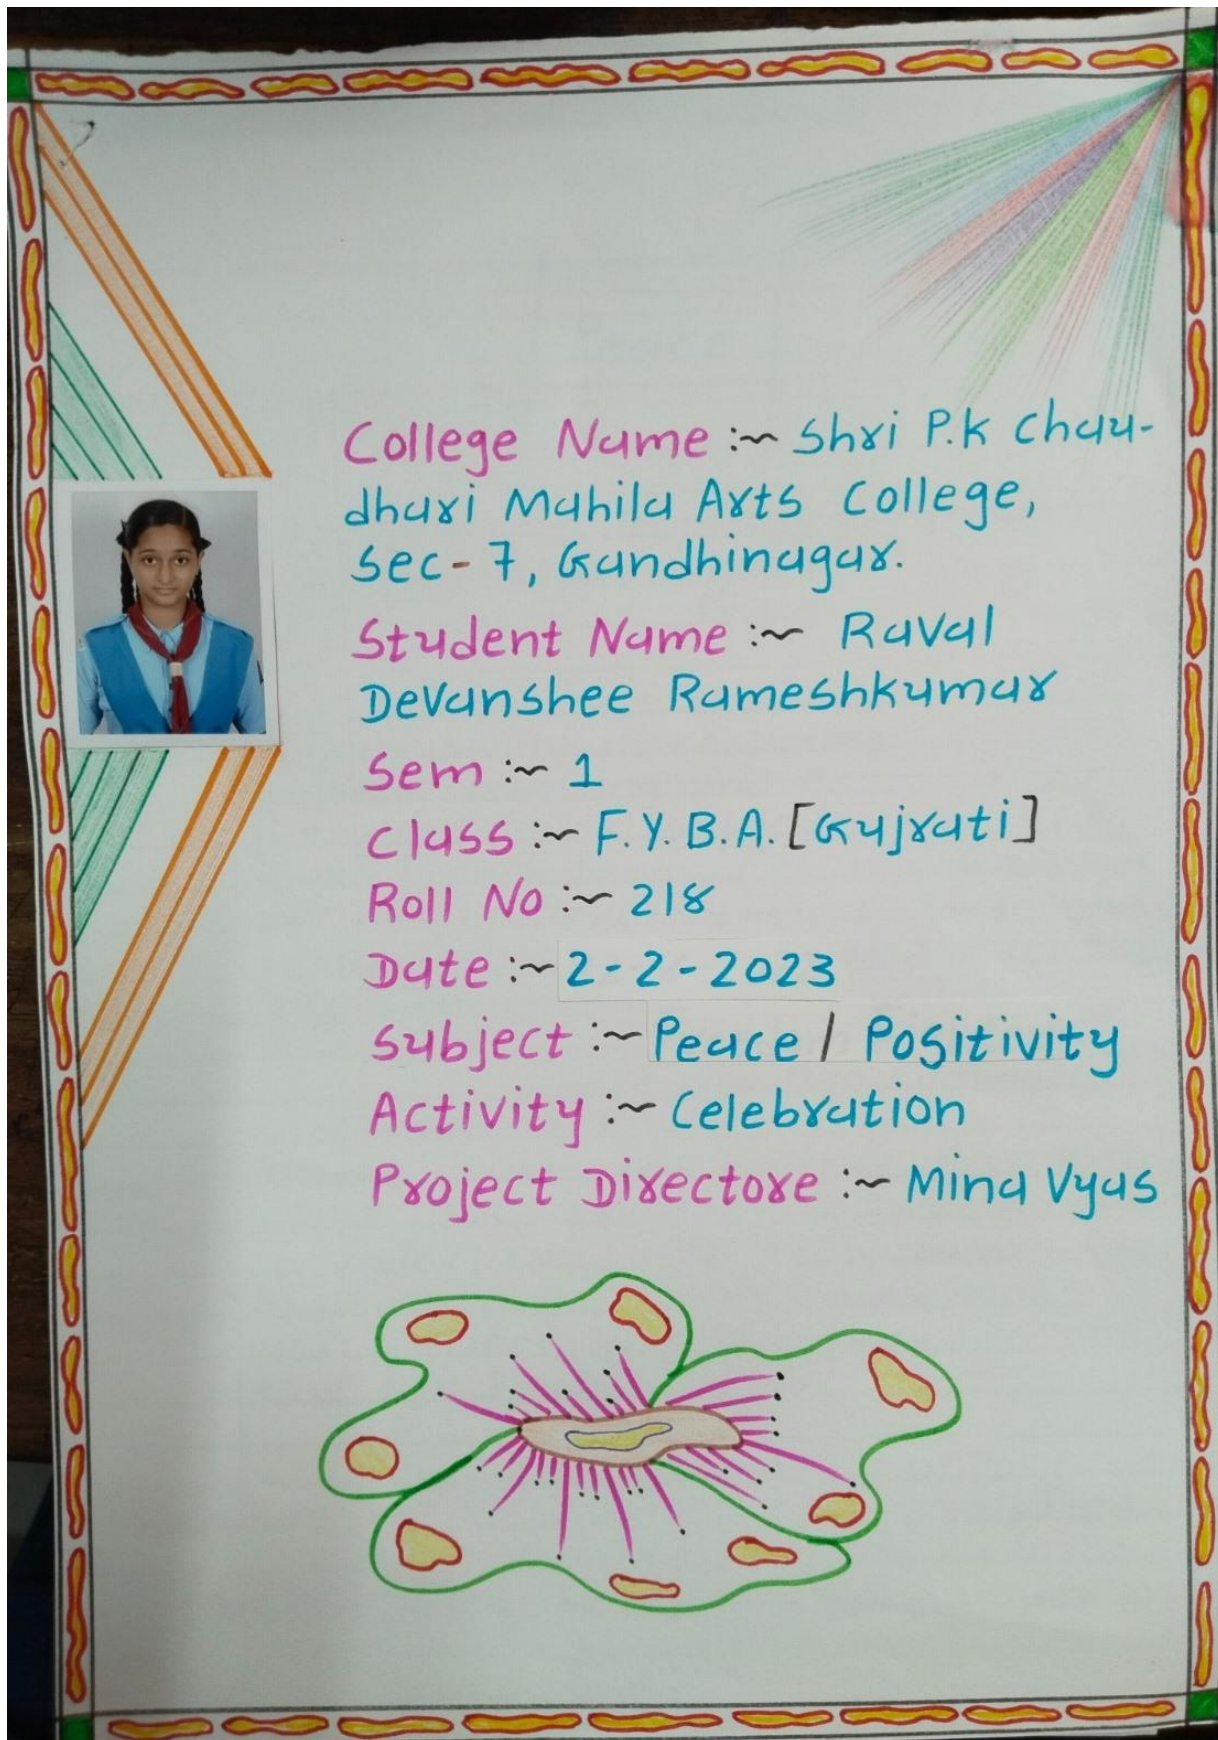 College Name :~ Shri P.K Chau-
dhari Mahila Arts College,
Sec-7, Gandhinagar.
Student Name :~ Raval
Devanshee Rameshkumar
Sem :~ 1
Class :~ F.Y.B.A. [Gujrati]
Roll No :~ 218
Date :~ 2-2-2023
Subject :~ Peace / Positivity
Activity :~ Celebration
Project Directore :~ Mina Vyas